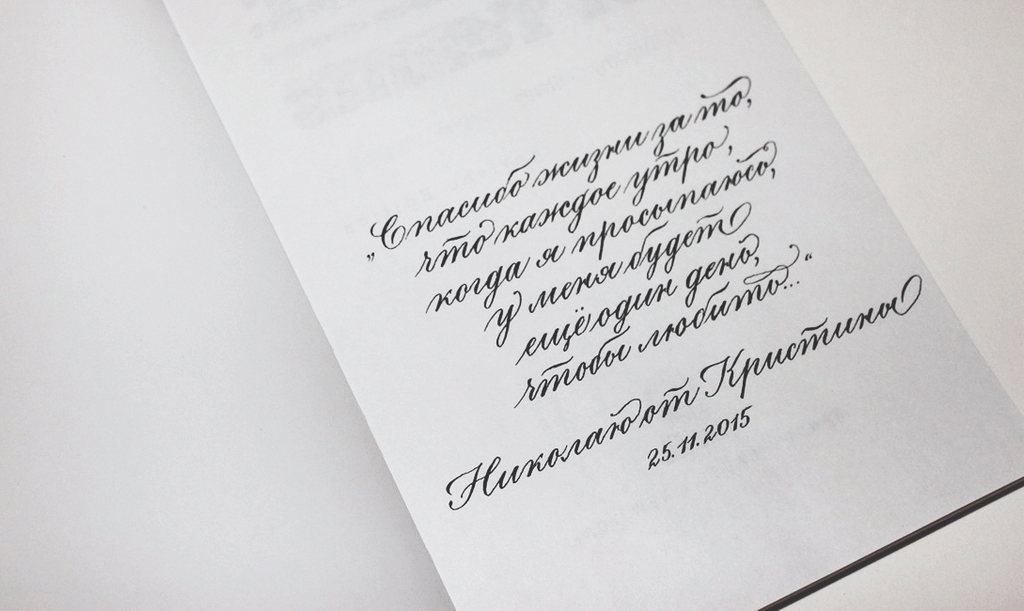 „Спасибо жизни за то,
что каждое утро,
когда я просыпаюсь,
у меня будет
ещё один день,
чтобы любить..."
Николаю от Кристины
25.11.2015